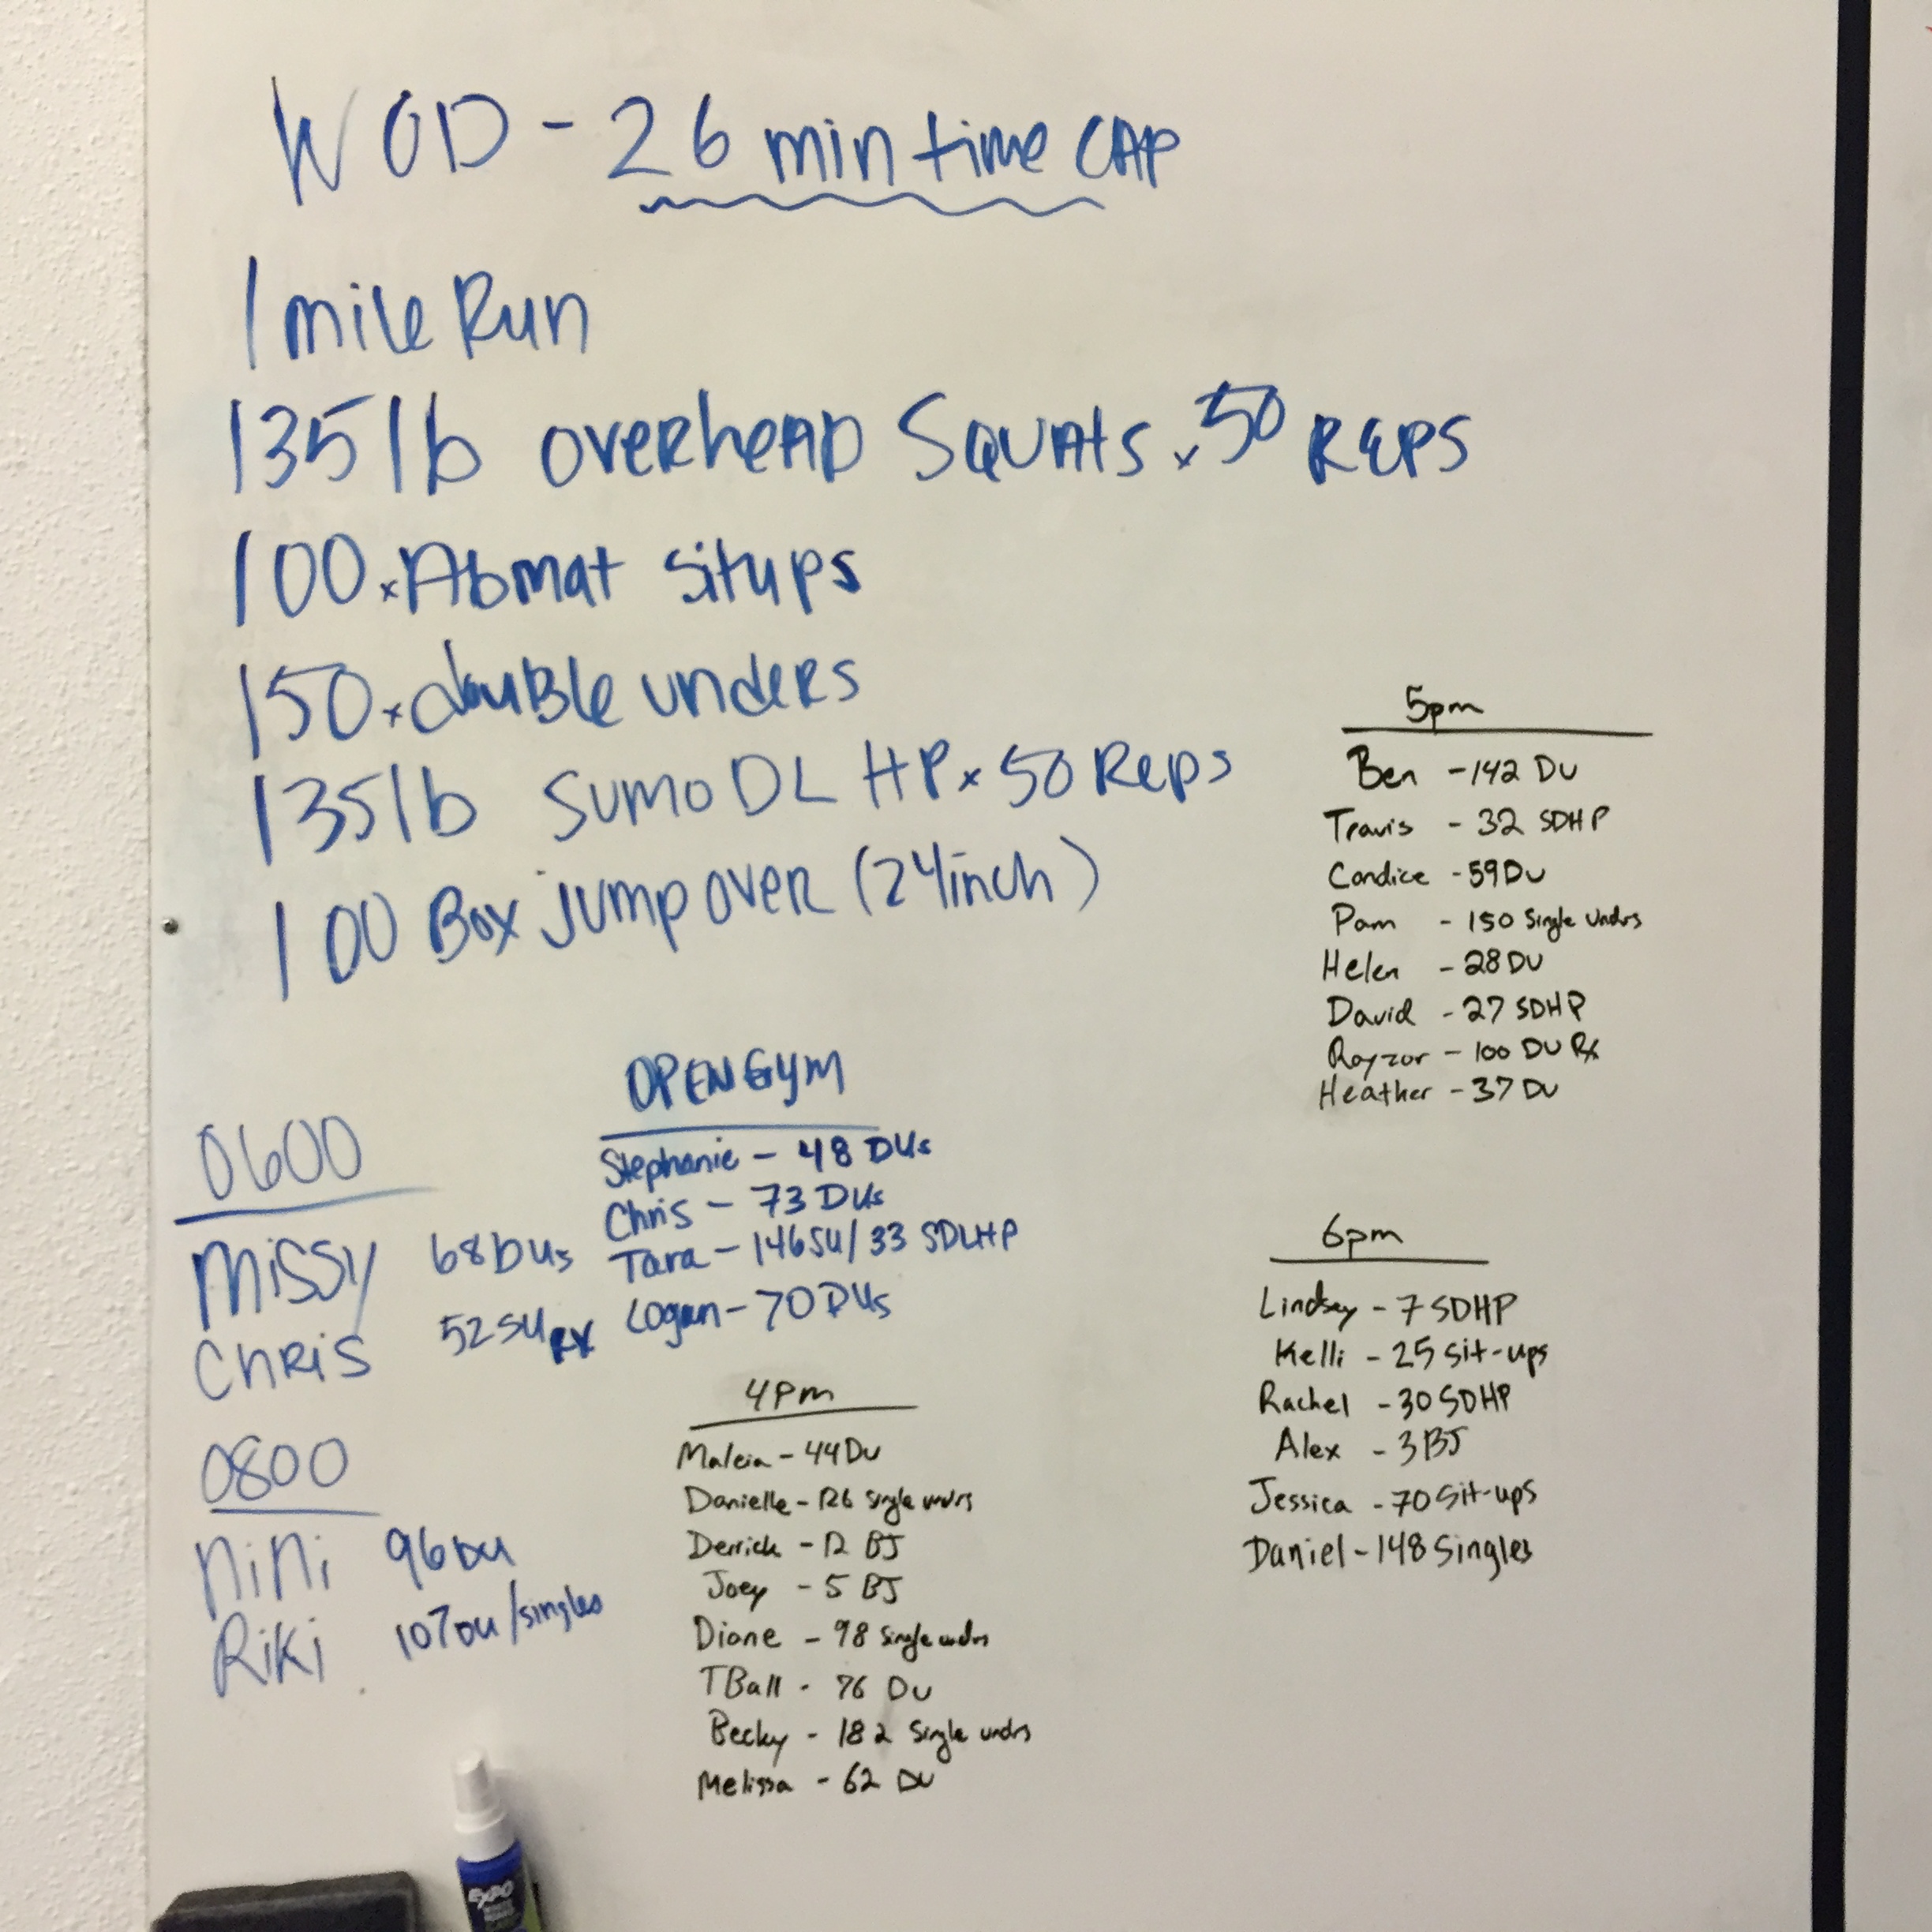 WOD - 26 min time CAP
1 mile Run
135 lb overhead Squats x 50 REPS
100 x Abmat situps
150 x double unders
135 lb Sumo DL HP x 50 Reps
100 Box jump over (24inch)
0600
Missy 68 DUs
Chris 52 SU RX
0800
NiNi 96 DU
Riki 107 DU/singles
OPEN GYM
Stephanie - 48 DUs
Chris - 73 DUs
Tara - 146 SU/ 33 SDLHP
Logan - 70 DUs
4pm
Malcia - 44 DU
Danielle - 126 Single undrs
Derrick - 12 BJ
Joey - 5 BJ
Diane - 98 Single undrs
TBall - 76 DU
Becky - 182 Single undrs
Melissa - 62 DU
5pm
Ben - 142 DU
Travis - 32 SDHP
Candice - 59 DU
Pam - 150 Single Undrs
Helen - 28 DU
David - 27 SDHP
Rayzor - 100 DU Rx
Heather - 37 DU
6pm
Lindsey - 7 SDHP
Kelli - 25 Sit-ups
Rachel - 30 SDHP
Alex - 3 BJ
Jessica - 70 Sit-ups
Daniel - 148 Singles
EXPO